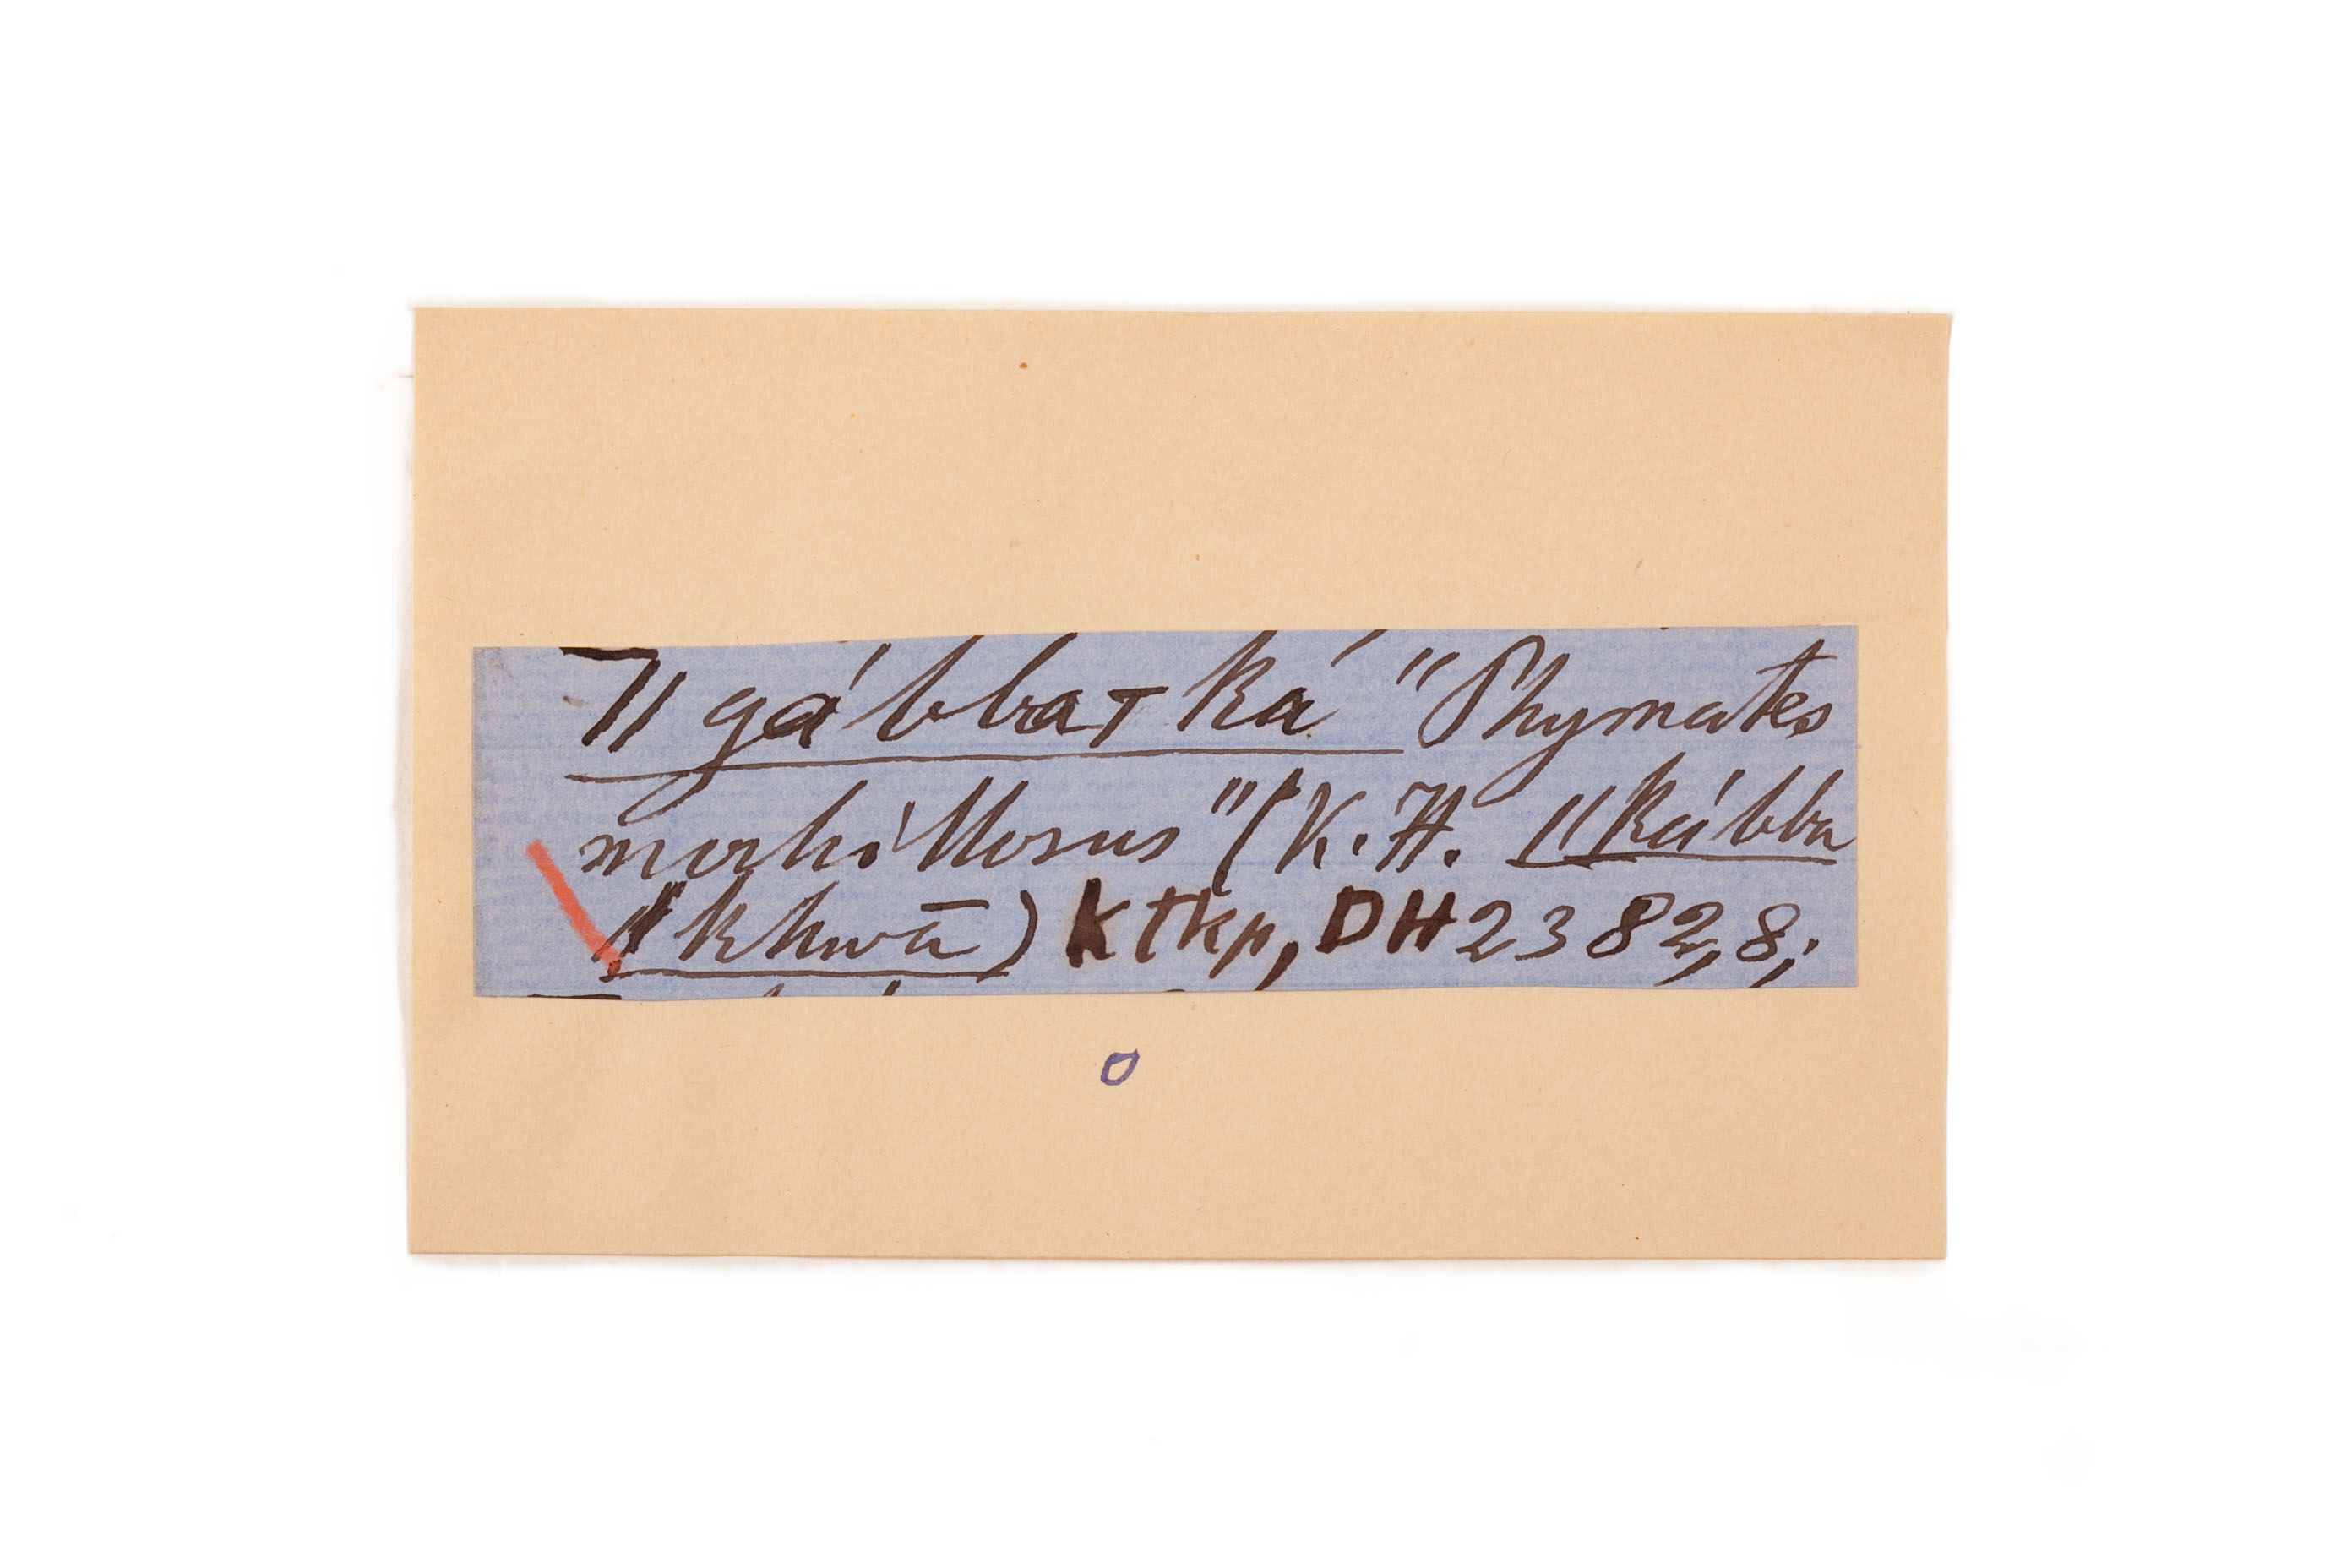 ‖gábba-ká "Phymates
morbillosus" (K.H. ‖kábba
‖khwā) ktkp, DH2382,8;
o